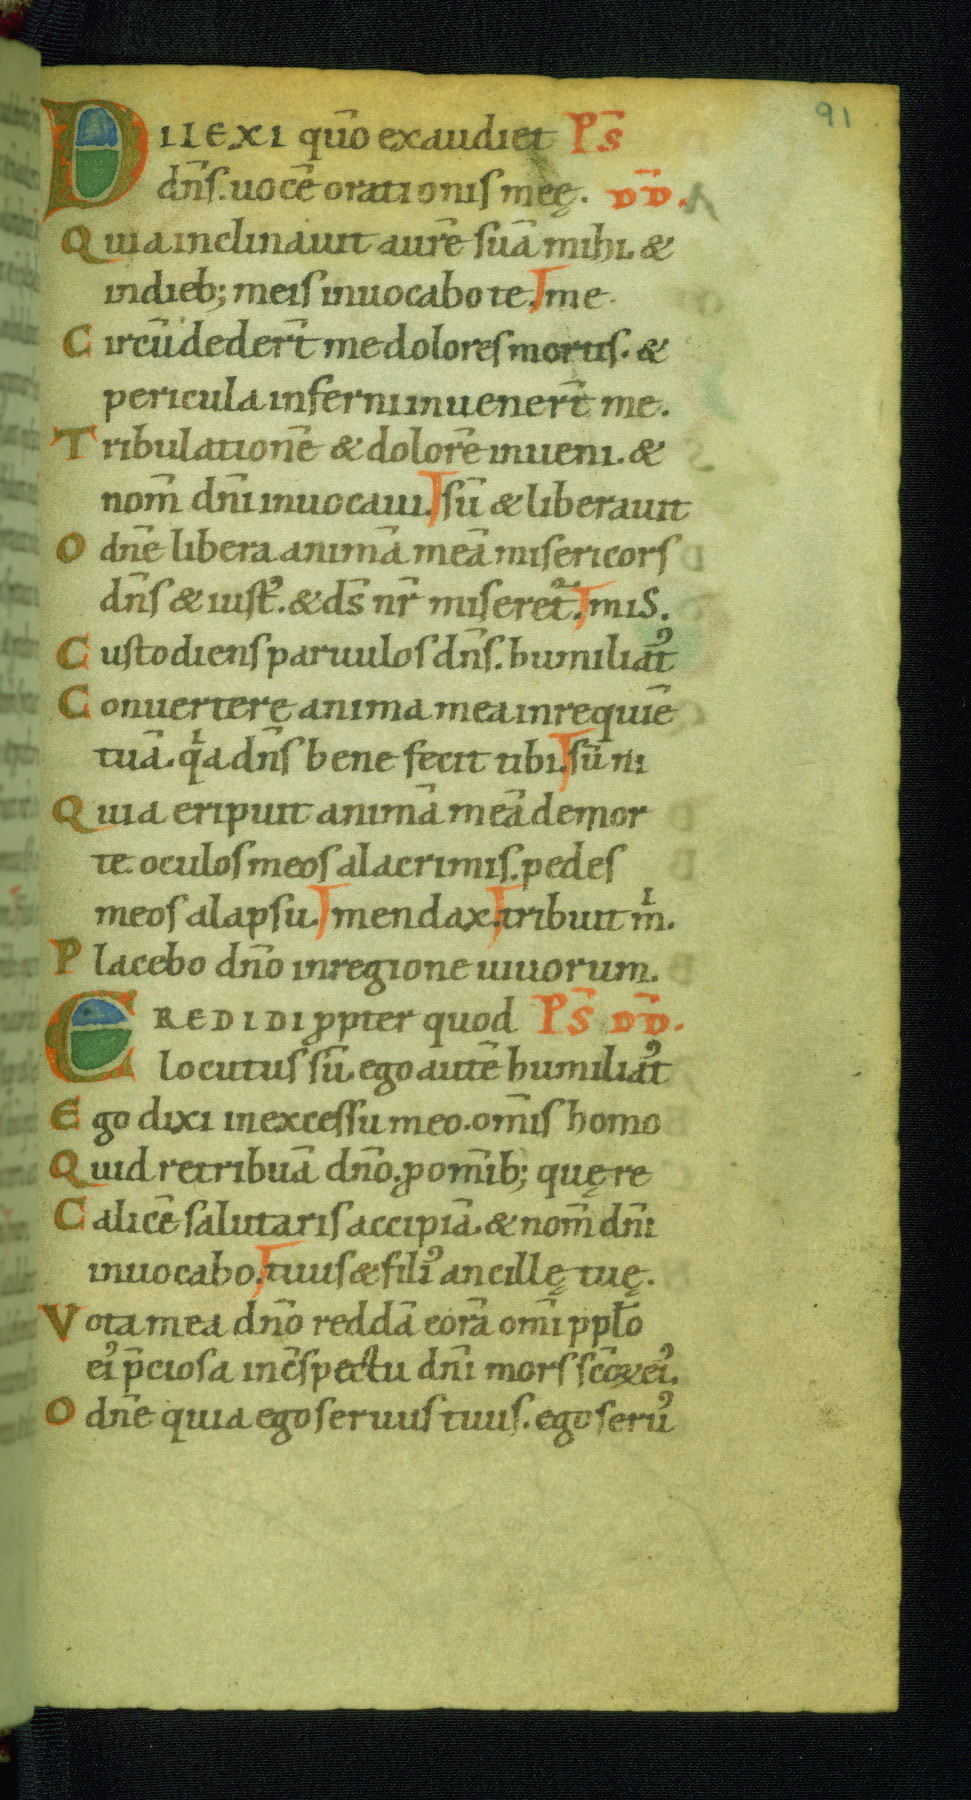 91
DILEXI qūo exaudiet P̄s
dn̄s. uocē orationis meę. DD̄.
Quia inclinauit aurē suā mihi. &
indieb; meis inuocabo te. me.
Circūdedert̄ me dolores mortis. &
pericula inferni inuenert̄ me.
Tribulationē & dolorē inueni. &
nom̄ dn̄i inuocaui. sū & liberauit
O dn̄e libera animā meā misericors
dn̄s & iust᾿. & ds̄ nr̄ miseret᷑. mis.
Custodiens paruulos dn̄s. humiliat᾿
Conuertere anima mea inrequiē
tuā. qͥa dn̄s bene fecit tibi. sū ni
Quia eripuit animā meā demor
te. oculos meos alacrimis. pedes
meos alapsu. mendax. tribuit mͥ.
Placebo dn̄o inregione uiuorum.
CREDIDI ꝓpter quod P̄s DD̄.
locutus sū. ego autē humiliat᾿
Ego dixi inexcessu meo. om̄is homo
Quid retribuā dn̄o. ꝓ om̄ib; quę re
Calicē salutaris accipiā. & nom̄ dn̄i
inuocabo. tuus & fili᾿ ancillę tuę.
Vota mea dn̄o reddā corā om̄i ppl̄o
ei᾿ p̄ciosa inc̄spectu dn̄i mors sc̄oꝝ ei᾿.
O dn̄e quia ego seruus tuus. ego seru᾿